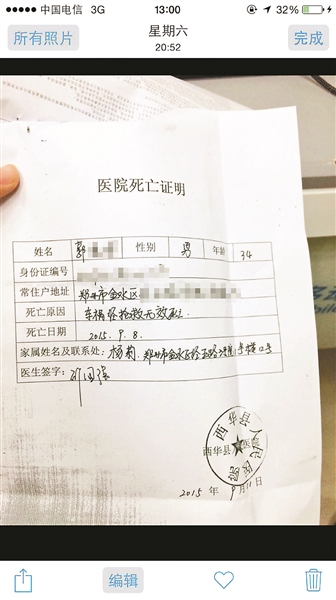 中国电信 3G 13:00 32%
所有照片 星期六 完成
20:52
医院死亡证明
姓名 郭 性别 男 年龄 34
身份证编号
常住户地址 郑州市金水区
死亡原因 车祸经抢救无效死亡
死亡日期 2015.9.8.
家属姓名及联系处: 杨莉. 郑州市金水区经五路 号楼 号
医生签字:
西华县人民医院
西华县 医院
2015 年 9月11日
编辑